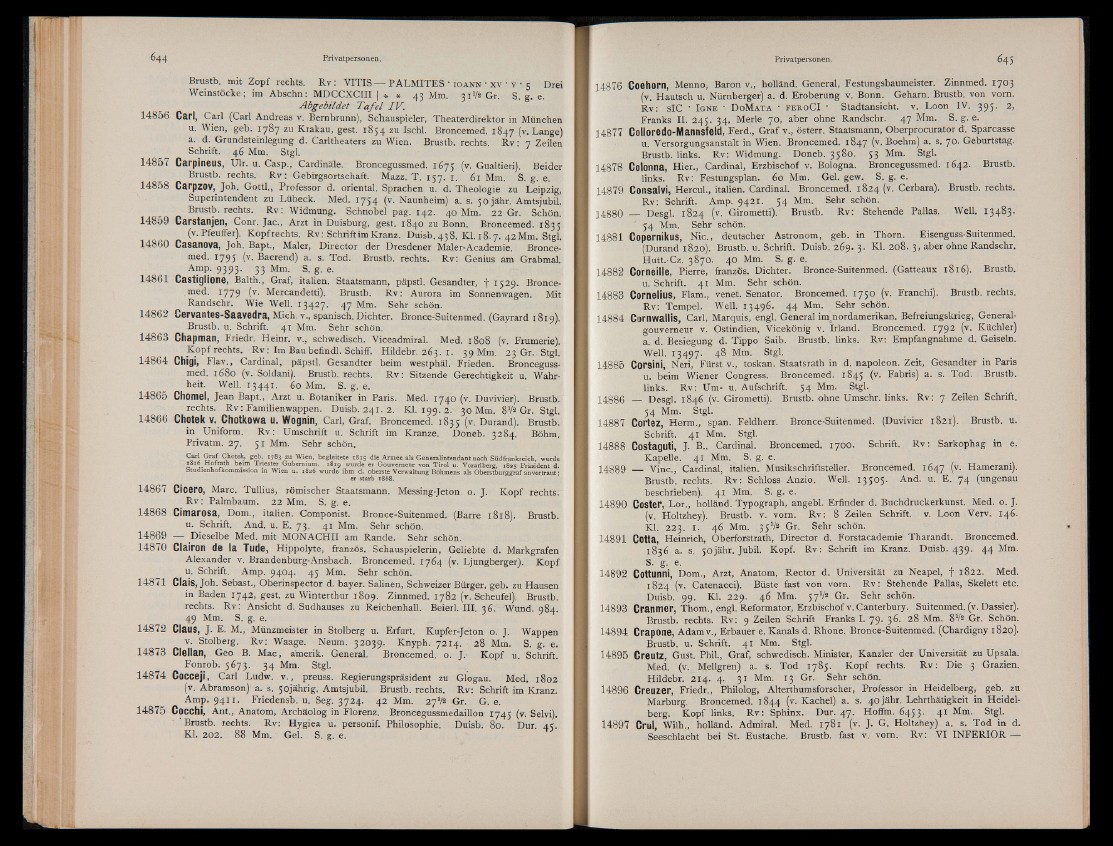 644 Privatpersonen.
Brustb. mit Zopf rechts. Rv: VITIS — PALMITES · IOANN · XV · V · 5 Drei
Weinstöcke; im Abschn: MDCCXCIII | * * 43 Mm. 31½ Gr. S. g. e.
Abgebildet Tafel IV.
14856 Carl, Carl (Carl Andreas v. Bernbrunn), Schauspieler, Theaterdirektor in München
u. Wien, geb. 1787 zu Krakau, gest. 1854 zu Ischl. Broncemed. 1847 (v. Lange)
a. d. Grundsteinlegung d. Carltheaters zu Wien. Brustb. rechts. Rv: 7 Zeilen
Schrift. 46 Mm. Stgl.
14857 Carpineus, Ulr. u. Casp., Cardinäle. Broncegussmed. 1675 (v. Gualtieri). Beider
Brustb. rechts. Rv: Gebirgsortschaft. Mazz. T. 157. 1. 61 Mm. S. g. e.
14858 Carpzov, Joh. Gottl., Professor d. oriental. Sprachen u. d. Theologie zu Leipzig,
Superintendent zu Lübeck. Med. 1754 (v. Naunheim) a. s. 50 jähr. Amtsjubil.
Brustb. rechts. Rv: Widmung. Schnobel pag. 142. 40 Mm. 22 Gr. Schön.
14859 Carstanjen, Conr. Jac., Arzt in Duisburg, gest. 1840 zu Bonn. Broncemed. 1835
(v. Pfeuffer). Kopf rechts. Rv: Schrift im Kranz. Duisb. 438. Kl. 18. 7. 42 Mm. Stgl.
14860 Casanova, Joh. Bapt., Maler, Director der Dresdener Maler-Academie. Bronce-
med. 1795 (v. Baerend) a. s. Tod. Brustb. rechts. Rv: Genius am Grabmal.
Amp. 9393. 33 Mm. S. g. e.
14861 Castiglione, Balth., Graf, italien. Staatsmann, päpstl. Gesandter, † 1529. Bronce-
med. 1779 (v. Mercandetti). Brustb. Rv: Aurora im Sonnenwagen. Mit
Randschr. Wie Well. 13427. 47 Mm. Sehr schön.
14862 Cervantes-Saavedra, Mich. v., spanisch. Dichter. Bronce-Suitenmed. (Gayrard 1819).
Brustb. u. Schrift. 41 Mm. Sehr schön.
14863 Chapman, Friedr. Heinr. v., schwedisch. Viceadmiral. Med. 1808 (v. Frumerie).
Kopf rechts. Rv: Im Bau befindl. Schiff. Hildebr. 263. 1. 39 Mm. 23 Gr. Stgl.
14864 Chigi, Flav., Cardinal, päpstl. Gesandter beim westphäl. Frieden. Bronceguss-
med. 1680 (v. Soldani). Brustb. rechts. Rv: Sitzende Gerechtigkeit u. Wahr-
heit. Well. 13441. 60 Mm. S. g. e.
14865 Chomel, Jean Bapt., Arzt u. Botaniker in Paris. Med. 1740 (v. Duvivier). Brustb.
rechts. Rv: Familienwappen. Duisb. 241. 2. Kl. 199. 2. 30 Mm. 8½ Gr. Stgl.
14866 Chotek v. Chotkowa u. Wognin, Carl, Graf. Broncemed. 1835 (v. Durand). Brustb.
in Uniform. Rv: Umschrift u. Schrift im Kranze. Doneb. 3284. Böhm,
Privatm. 27. 51 Mm. Sehr schön.
Carl Graf Chotek, geb. 1783 zu Wien, begleitete 1815 die Armee als Generalintendant nach Südfrankreich, wurde
1816 Hofrath beim Triester Gubernium. 1819 wurde er Gouverneur von Tirol u. Vorarlberg, 1825 Präsident d.
Studienhofkommission in Wien u. 1826 wurde ihm d. oberste Verwaltung Böhmens als Oberstburggraf anvertraut;
er starb 1868.
14867 Cicero, Marc. Tullius, römischer Staatsmann. Messing-Jeton o. J. Kopf rechts.
Rv: Palmbaum. 22 Mm. S. g. e.
14868 Cimarosa, Dom., italien. Componist. Bronce-Suitenmed. (Barre 1818). Brustb.
u. Schrift. And. u. E. 73. 41 Mm. Sehr schön.
14869 — Dieselbe Med. mit MONACHII am Rande. Sehr schön.
14870 Clairon de la Tude, Hippolyte, französ. Schauspielerin, Geliebte d. Markgrafen
Alexander v. Brandenburg-Ansbach. Broncemed. 1764 (v. Ljungberger). Kopf
u. Schrift. Amp. 9404. 45 Mm. Sehr schön.
14871 Clais, Joh. Sebast., Oberinspector d. bayer. Salinen, Schweizer Bürger, geb. zu Hausen
in Baden 1742, gest. zu Winterthur 1809. Zinnmed. 1782 (v. Scheufel). Brustb.
rechts. Rv: Ansicht d. Sudhauses zu Reichenhall. Beierl. III. 36. Wund. 984.
49 Mm. S. g. e.
14872 Claus, J. E. M., Münzmeister in Stolberg u. Erfurt. Kupfer-Jeton o. J. Wappen
v. Stolberg. Rv: Waage. Neum. 32039. Knyph. 7214. 28 Mm. S. g. e.
14873 Clellan, Geo B. Mac, amerik. General. Broncemed. o. J. Kopf u. Schrift.
Fonrob. 5673. 34 Mm. Stgl.
14874 Cocceji, Carl Ludw. v., preuss. Regierungspräsident zu Glogau. Med. 1802
(v. Abramson) a. s. 50jährig. Amtsjubil. Brustb. rechts. Rv: Schrift im Kranz.
Amp. 9411. Friedensb. u. Seg. 3724. 42 Mm. 27½ Gr. G. e.
14875 Cocchi, Ant., Anatom, Archäolog in Florenz. Broncegussmedaillon 1745 (v. Selvi).
Brustb. rechts. Rv: Hygiea u. personif. Philosophie. Duisb. 80. Dur. 45.
Kl. 202. 88 Mm. Gel. S. g. e.
Privatpersonen. 645
14876 Coehorn, Menno, Baron v., holländ. General, Festungsbaumeister. Zinnmed. 1703
(v. Hautsch u. Nürnberger) a. d. Eroberung v. Bonn. Geharn. Brustb. von vorn.
Rv: SIC · IGNE · DOMATA · FEROCI · Stadtansicht. v. Loon IV. 395. 2,
Franks II. 245. 34, Merle 70, aber ohne Randschr. 47 Mm. S. g. e.
14877 Colloredo-Mannsfeld, Ferd., Graf v., österr. Staatsmann, Oberprocurator d. Sparcasse
u. Versorgungsanstalt in Wien. Broncemed. 1847 (v. Boehm) a. s. 70. Geburtstag.
Brustb. links. Rv: Widmung. Doneb. 3580. 53 Mm. Stgl.
14878 Colonna, Hier., Cardinal, Erzbischof v. Bologna. Broncegussmed. 1642. Brustb.
links. Rv: Festungsplan. 60 Mm. Gel. gew. S. g. e.
14879 Consalvi, Hercul., italien. Cardinal. Broncemed. 1824 (v. Cerbara). Brustb. rechts.
Rv: Schrift. Amp. 9421. 54 Mm. Sehr schön.
14880 — Desgl. 1824 (v. Girometti). Brustb. Rv: Stehende Pallas. Well. 13483.
54 Mm. Sehr schön.
14881 Copernikus, Nic., deutscher Astronom, geb. in Thorn. Eisenguss-Suitenmed.
(Durand 1820). Brustb. u. Schrift. Duisb. 269. 3. Kl. 208. 3, aber ohne Randschr.
Hutt.-Cz. 3870. 40 Mm. S. g. e.
14882 Corneille, Pierre, französ. Dichter. Bronce-Suitenmed. (Gatteaux 1816). Brustb.
u. Schrift. 41 Mm. Sehr schön.
14883 Cornelius, Flam., venet. Senator. Broncemed. 1750 (v. Franchi). Brustb. rechts.
Rv: Tempel. Well. 13496. 44 Mm. Sehr schön.
14884 Cornwallis, Carl, Marquis, engl. General im nordamerikan. Befreiungskrieg, General-
gouverneur v. Ostindien, Vicekönig v. Irland. Broncemed. 1792 (v. Küchler)
a. d. Besiegung d. Tippo Saib. Brustb. links. Rv: Empfangnahme d. Geiseln.
Well. 13497. 48 Mm. Stgl.
14885 Corsini, Neri, Fürst v., toskan. Staatsrath in d. napoleon. Zeit, Gesandter in Paris
u. beim Wiener Congress. Broncemed. 1845 (v. Fabris) a. s. Tod. Brustb.
links. Rv: Um- u. Aufschrift. 54 Mm. Stgl.
14886 — Desgl. 1846 (v. Girometti). Brustb. ohne Umschr. links. Rv: 7 Zeilen Schrift.
54 Mm. Stgl.
14887 Cortez, Herm., span. Feldherr. Bronce-Suitenmed. (Duvivier 1821). Brustb. u.
Schrift. 41 Mm. Stgl.
14888 Costaguti, J. B., Cardinal. Broncemed. 1700. Schrift. Rv: Sarkophag in e.
Kapelle. 41 Mm. S. g. e.
14889 — Vinc., Cardinal, italien. Musikschriftsteller. Broncemed. 1647 (v. Hamerani).
Brustb. rechts. Rv: Schloss Anzio. Well. 13505. And. u. E. 74 (ungenau
beschrieben). 41 Mm. S. g. e.
14890 Coster, Lor., holländ. Typograph, angebl. Erfinder d. Buchdruckerkunst. Med. o. J.
(v. Holtzhey). Brustb. v. vorn. Rv: 8 Zeilen Schrift. v. Loon Verv. 146.
Kl. 223. 1. 46 Mm. 35½ Gr. Sehr schön.
14891 Cotta, Heinrich, Oberforstrath, Director d. Forstacademie Tharandt. Broncemed.
1836 a. s. 50jähr. Jubil. Kopf. Rv: Schrift im Kranz. Duisb. 439. 44 Mm.
S. g. e.
14892 Cottunni, Dom., Arzt, Anatom, Rector d. Universität zu Neapel, † 1822. Med.
1824 (v. Catenacci). Büste fast von vorn. Rv: Stehende Pallas, Skelett etc.
Duisb. 99. Kl. 229. 46 Mm. 57½ Gr. Sehr schön.
14893 Cranmer, Thom., engl. Reformator, Erzbischof v. Canterbury. Suitenmed. (v. Dassier).
Brustb. rechts. Rv: 9 Zeilen Schrift Franks I. 79. 36. 28 Mm. 8½ Gr. Schön.
14894 Crapone, Adam v., Erbauer e. Kanals d. Rhone. Bronce-Suitenmed. (Chardigny 1820).
Brustb. u. Schrift. 41 Mm. Stgl.
14895 Creutz, Gust. Phil., Graf, schwedisch. Minister, Kanzler der Universität zu Upsala.
Med. (v. Mellgren) a. s. Tod 1785. Kopf rechts. Rv: Die 3 Grazien.
Hildebr. 214. 4. 31 Mm. 13 Gr. Sehr schön.
14896 Creuzer, Friedr., Philolog, Alterthumsforscher, Professor in Heidelberg, geb. zu
Marburg. Broncemed. 1844 (v. Kachel) a. s. 40 jähr. Lehrthätigkeit in Heidel-
berg. Kopf links. Rv: Sphinx. Dur. 47. Hoffm. 6453. 41 Mm. Stgl.
14897 Crul, Wilh., holländ. Admiral. Med. 1781 (v. J. G. Holtzhey) a. s. Tod in d.
Seeschlacht bei St. Eustache. Brustb. fast v. vorn. Rv: VI INFERIOR —